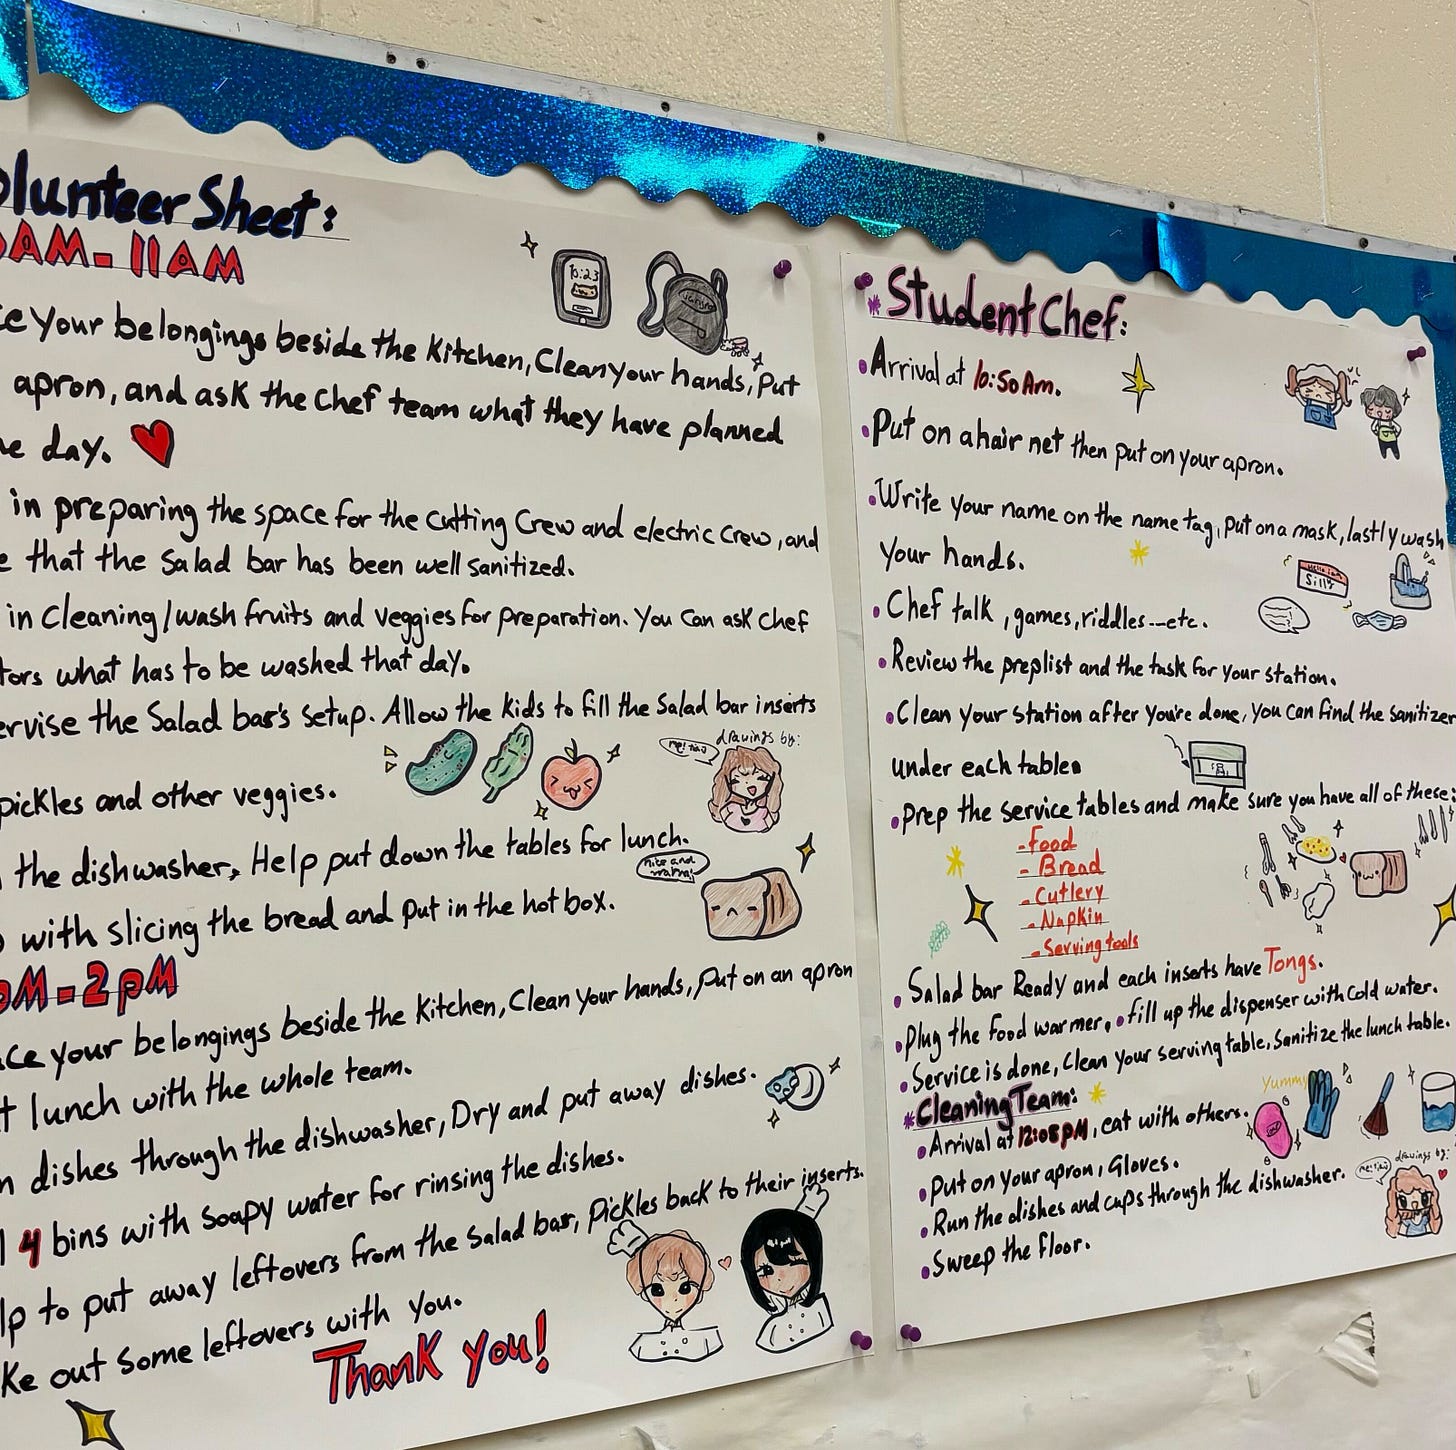 olunteer Sheet:
AM-11AM
10:23
ce your belongings beside the kitchen, Clean your hands, Put
apron, and ask the Chef team what they have planned
e day.
in preparing the space for the Cutting Crew and electric Crew, and
e that the Salad bar has been well sanitized.
in Cleaning/wash fruits and veggies for preparation. You can ask chef
tors what has to be washed that day.
ervise the Salad bar's setup. Allow the kids to fill the Salad bar inserts
pickles and other veggies.
drawings by:
the dishwasher, Help put down the tables for lunch.
with slicing the bread and put in the hot box.
nice and warm!
PM-2pM
ace your belongings beside the kitchen, Clean your hands, put on an apron
t lunch with the whole team.
n dishes through the dishwasher, Dry and put away dishes.
l 4 bins with soapy water for rinsing the dishes.
lp to put away leftovers from the salad bar, Pickles back to their inserts.
ke out some leftovers with you.
Thank you!
* Student Chef:
•Arrival at 10:50Am.
•Put on a hair net then put on your apron.
•Write your name on the name tag, put on a mask, lastly wash
your hands.
Hello I am
Silly
•Chef talk, games, riddles--etc.
•Review the preplist and the task for your station.
•Clean your station after you're done, you can find the sanitizer
under each table.
•Prep the service tables and make sure you have all of these:
-Food
- Bread
-Cutlery
-Napkin
-Serving tools
•Salad bar Ready and each inserts have Tongs.
•Plug the food warmer, •fill up the dispenser with cold water.
•Service is done, Clean your serving table, Sanitize the lunch table.
*Cleaning Team:
Yummy
•Arrival at 12:05pM, eat with others.
•Put on your apron, Gloves.
•Run the dishes and cups through the dishwasher.
drawings by:
•Sweep the floor.